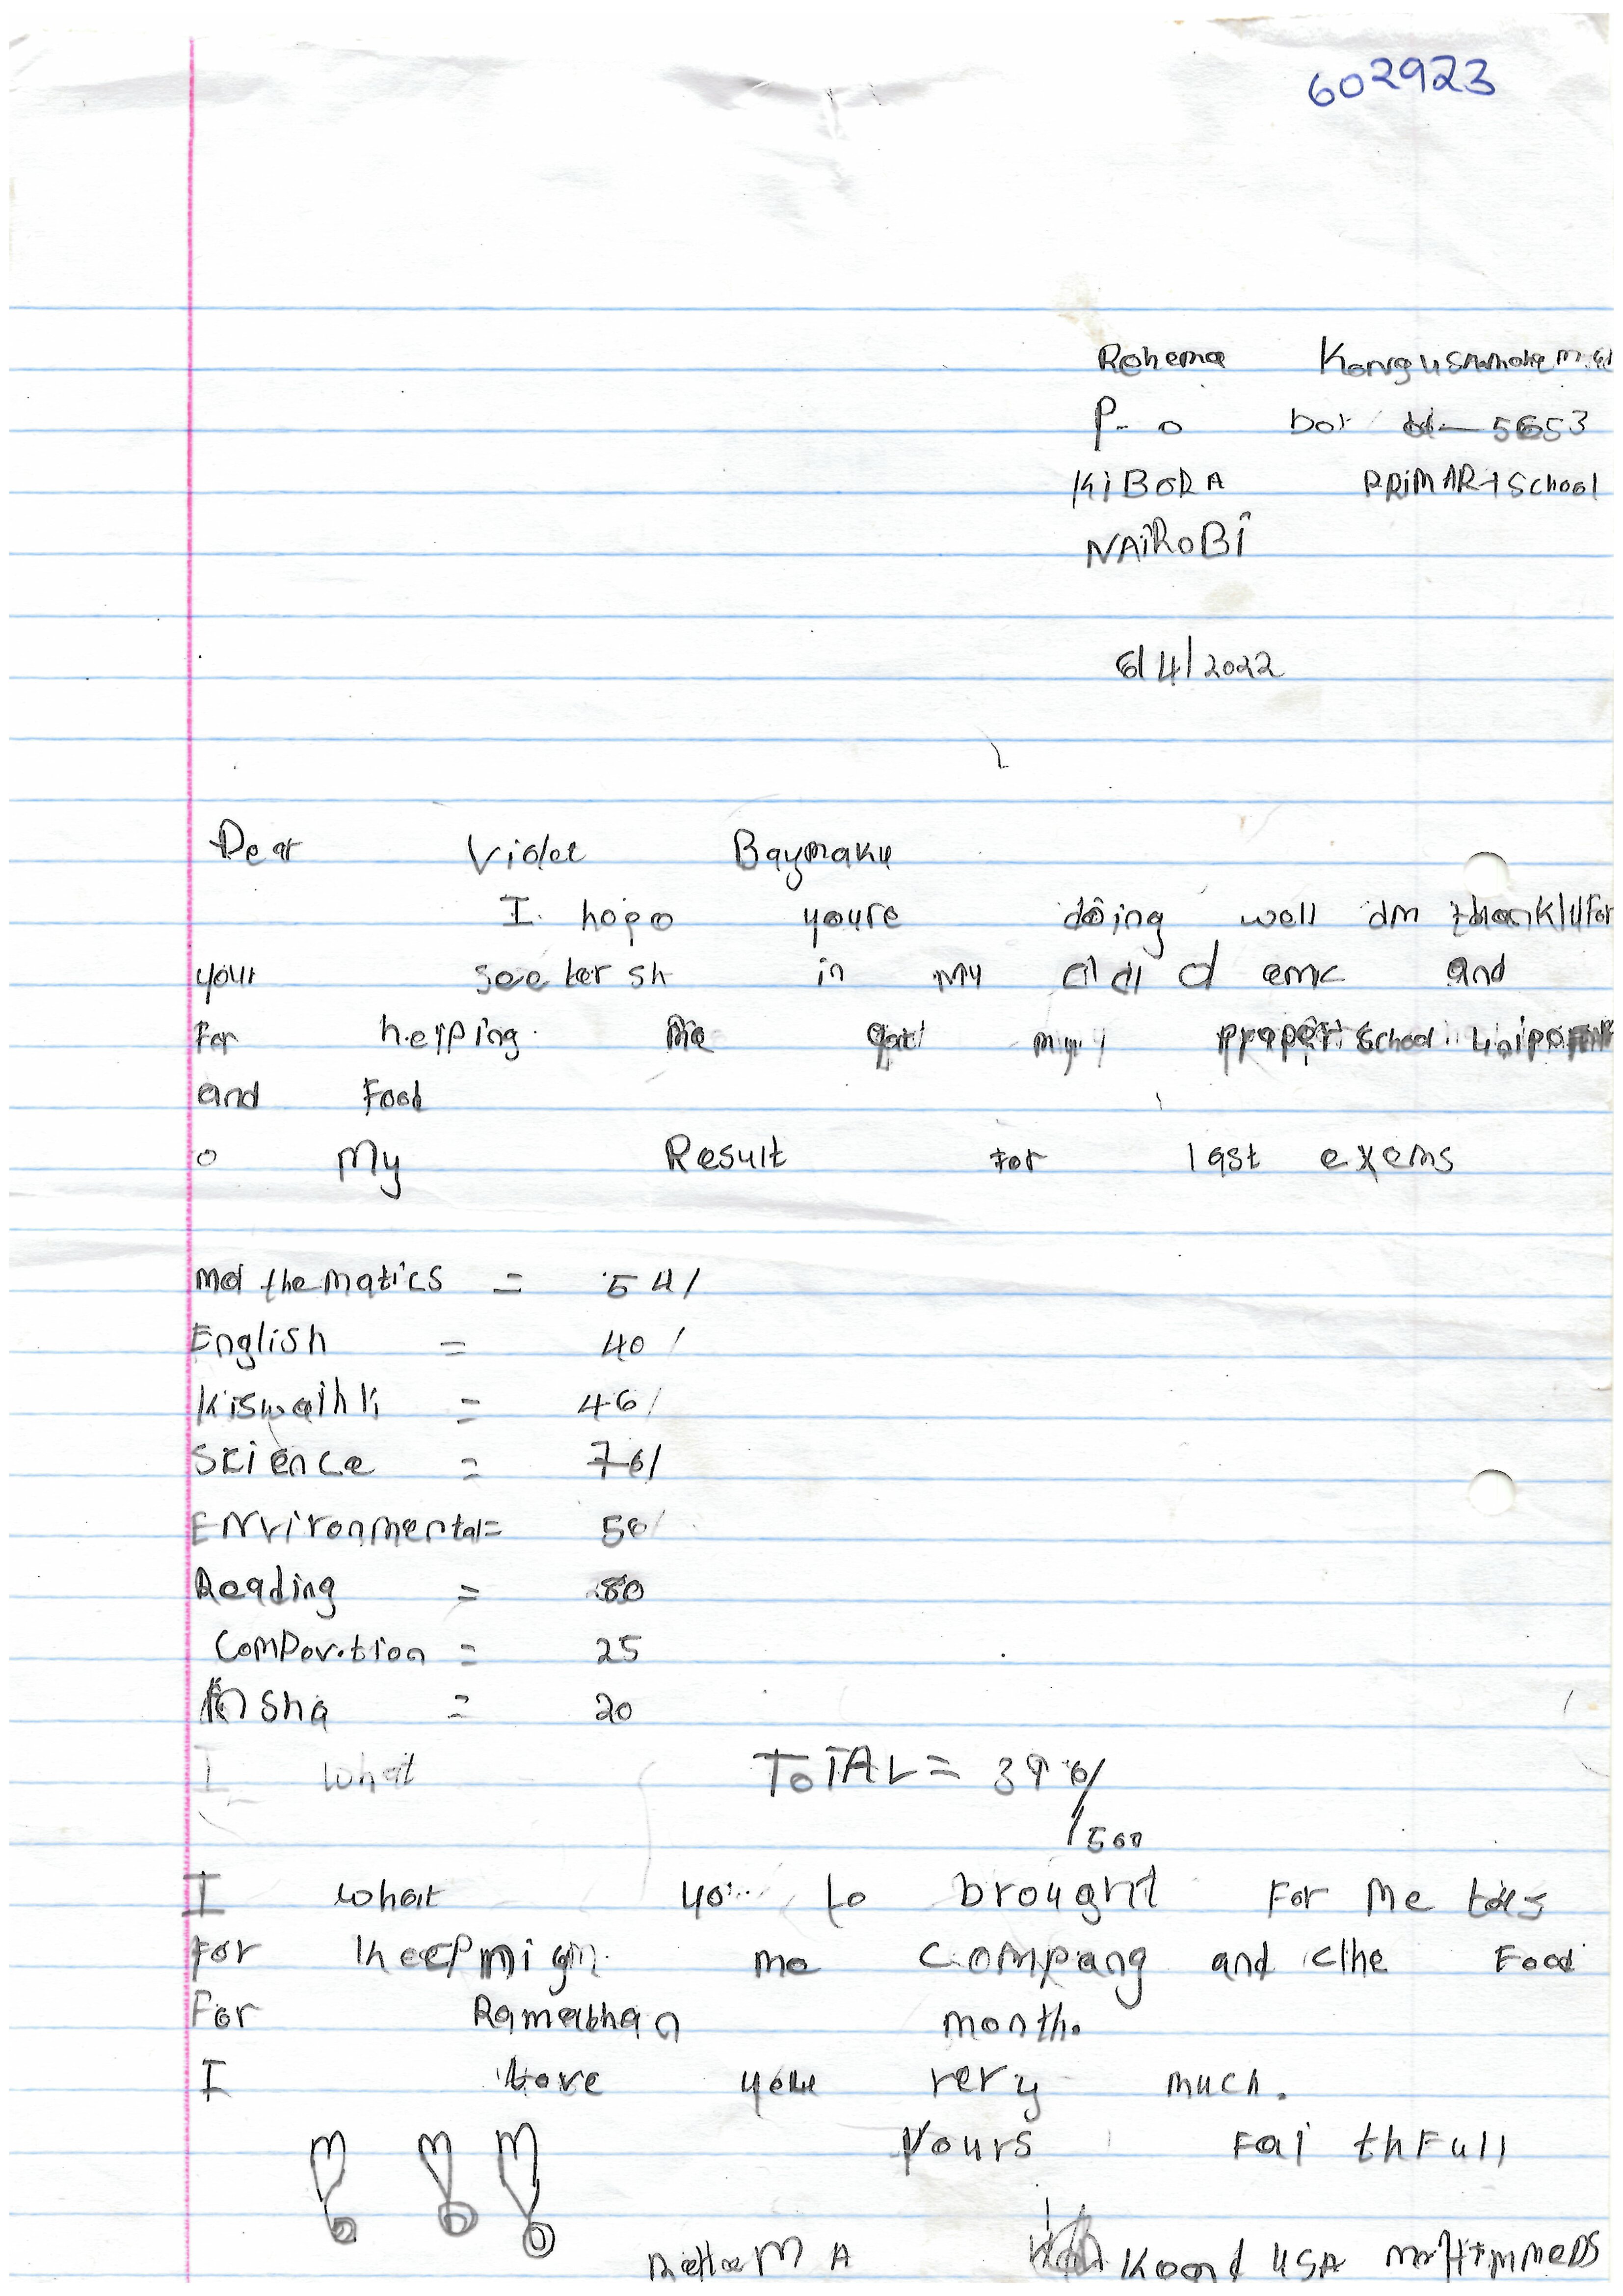 602923
Rehema
P-o box 5653
KiBORA PRiMARY School
NAiRoBi
6/4/2022
Dear Violet Baymaku
I hope youre doing well am thankful For
your in my and
For helping me get my proper school
and Food
o My Result for last exems
mathematics = 54/
English = 40/
Kiswaihli = 46/
Science = 76/
ENvironmental= 50/
Reading = 80
Composition = 25
Insha = 20
I what TOTAL = 396/
/500
I what you to brought For Me
For me company and the Food
For Ramadhan month.
I Love you very much.
Yours FaithFull